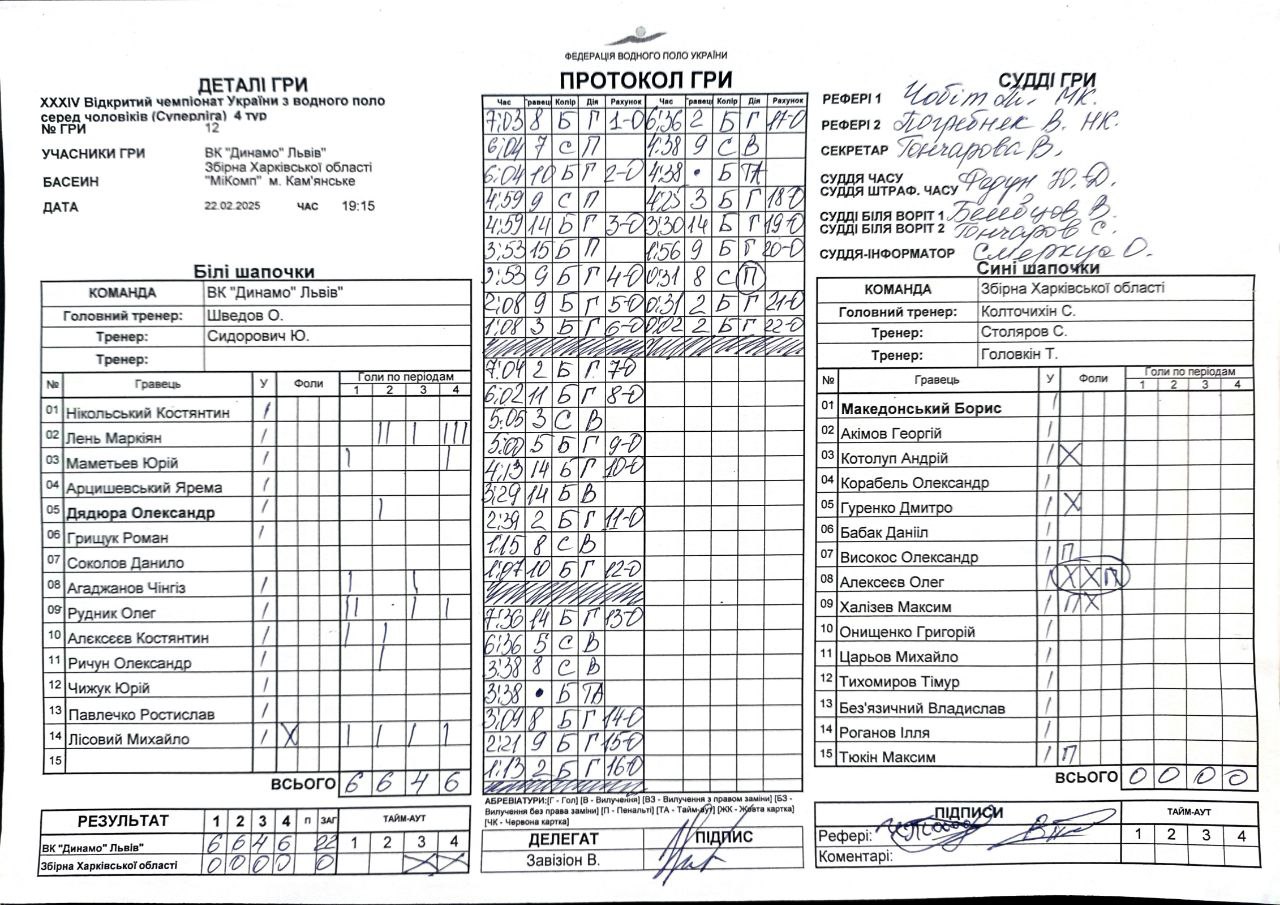 ФЕДЕРАЦІЯ ВОДНОГО ПОЛО УКРАЇНИ
ДЕТАЛІ ГРИ
XXXIV Відкритий чемпіонат України з водного поло
серед чоловіків (Суперліга) 4 тур
№ ГРИ 12
УЧАСНИКИ ГРИ ВК "Динамо" Львів"
Збірна Харківської області
БАСЕИН "МіКомп" м. Кам'янське
ДАТА 22.02.2025 ЧАС 19:15
Білі шапочки
КОМАНДА ВК "Динамо" Львів"
Головний тренер: Шведов О.
Тренер: Сидорович Ю.
Тренер:
№ Гравець У Фоли Голи по періодам
1 2 3 4
01 Нікольський Костянтин /
02 Лень Маркіян / || | |||
03 Маметьев Юрій / | |
04 Арцишевський Ярема /
05 Дядюра Олександр / |
06 Грищук Роман /
07 Соколов Данило
08 Агаджанов Чінгіз / | |
09 Рудник Олег / || | |
10 Алєксєєв Костянтин / | |
11 Ричун Олександр / |
12 Чижук Юрій /
13 Павлечко Ростислав /
14 Лісовий Михайло / X | | | |
15
ВСЬОГО 6 6 4 6
РЕЗУЛЬТАТ 1 2 3 4 П ЗАГ ТАЙМ-АУТ
ВК "Динамо" Львів" 6 6 4 6 22 1 2 3 4
Збірна Харківської області 0 0 0 0 0 1 2 X X
ПРОТОКОЛ ГРИ
Час Гравець Колір Дія Рахунок Час Гравець Колір Дія Рахунок
7:03 8 Б Г 1-0 6:36 2 Б Г 17-0
6:04 7 С П 4:38 9 С В
6:04 10 Б Г 2-0 4:38 • Б ТА
4:59 9 С П 4:25 3 Б Г 18-0
4:59 14 Б Г 3-0 3:30 14 Б Г 19-0
3:53 15 Б П 1:56 9 Б Г 20-0
3:53 9 Б Г 4-0 0:31 8 С П
2:08 9 Б Г 5-0 0:31 2 Б Г 21-0
1:08 3 Б Г 6-0 0:02 2 Б Г 22-0
7:04 2 Б Г 7-0
6:02 11 Б Г 8-0
5:05 3 С В
5:00 5 Б Г 9-0
4:13 14 Б Г 10-0
3:29 14 Б В
2:39 2 Б Г 11-0
1:15 8 С В
1:07 10 Б Г 12-0
7:36 14 Б Г 13-0
6:36 5 С В
3:38 8 С В
3:38 • Б ТА
3:09 8 Б Г 14-0
2:21 9 Б Г 15-0
1:13 2 Б Г 16-0
АБРЕВІАТУРИ:[Г - Гол] [В - Вилучення] [ВЗ - Вилучення з правом заміни] [БЗ -
Вилучення без права заміни] [П - Пенальті] [ТА - Тайм-аут] [ЖК - Жовта картка]
[ЧК - Червона картка]
ДЕЛЕГАТ ПІДПИС
Завізіон В.
СУДДІ ГРИ
РЕФЕРІ 1 Чобіт МК.
РЕФЕРІ 2 Погребняк В. НК.
СЕКРЕТАР Гончарова В.
СУДДЯ ЧАСУ Федун Ю. Д.
СУДДЯ ШТРАФ. ЧАСУ
СУДДІ БІЛЯ ВОРІТ 1 В.
СУДДІ БІЛЯ ВОРІТ 2 Гончаров С.
СУДДЯ-ІНФОРМАТОР О.
Сині шапочки
КОМАНДА Збірна Харківської області
Головний тренер: Колточихін С.
Тренер: Столяров С.
Тренер: Головкін Т.
№ Гравець У Фоли Голи по періодам
1 2 3 4
01 Македонський Борис /
02 Акімов Георгій /
03 Котолуп Андрій / X
04 Корабель Олександр /
05 Гуренко Дмитро / X
06 Бабак Данііл /
07 Високос Олександр / П
08 Алексеєв Олег / X X П
09 Халізев Максим / П X
10 Онищенко Григорій /
11 Царьов Михайло /
12 Тихомиров Тімур /
13 Без'язичний Владислав /
14 Роганов Ілля /
15 Тюкін Максим / П
ВСЬОГО 0 0 0 0
ПІДПИСИ ТАЙМ-АУТ
Рефері: 1 2 3 4
Коментарі: 1 2 3 4